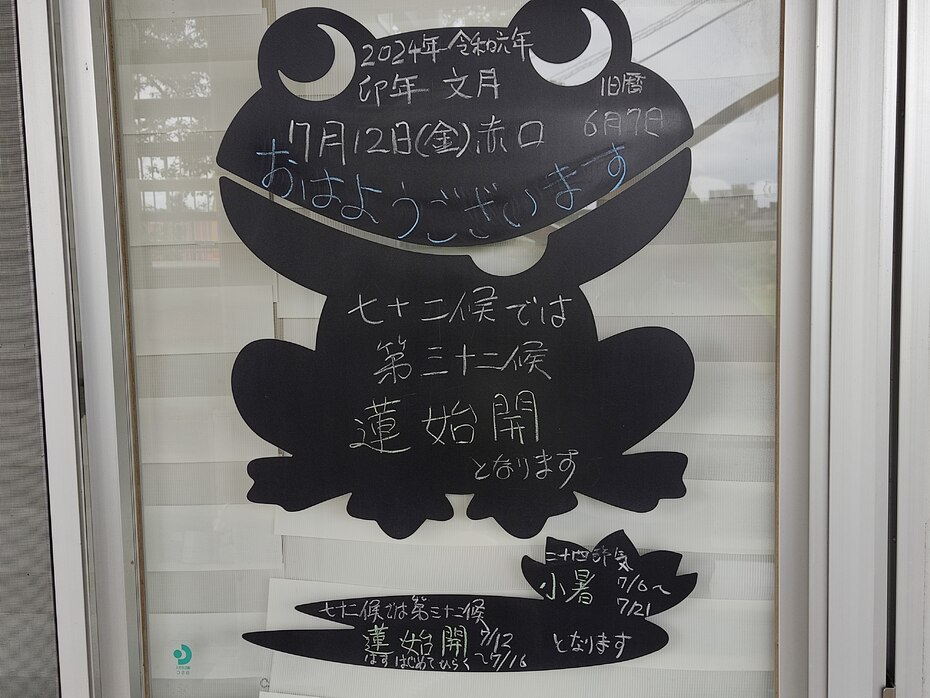 2024年 令和六年
卯年 文月
旧暦
6月7日
7月12日(金)赤口
おはようございます
七十二候では
第三十二候
蓮始開
となります
二十四節気
小暑 7/6～
7/21
七十二候では第三十二候
蓮始開 7/12
はすはじめてひらく ～7/16
となります